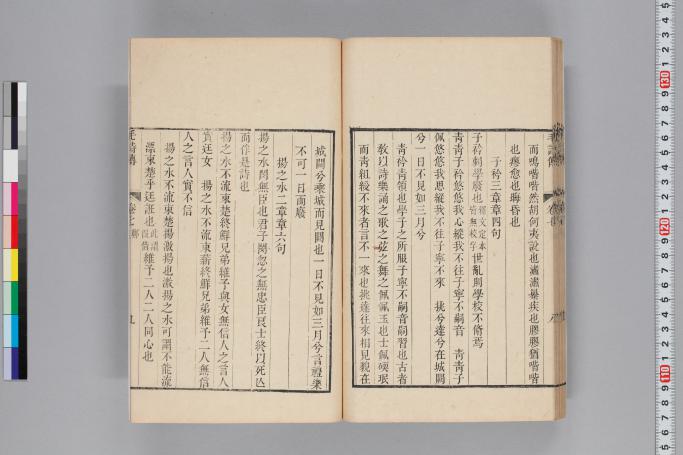 而鳴喈喈然胡何夷說也瀟瀟暴疾也膠膠猶喈喈
也瘳愈也晦昏也
子衿三章章四句
子衿刺學廢也世亂則學校不脩焉
青青子衿悠悠我心縱我不往子寧不嗣音 青青子
佩悠悠我思縱我不往子寧不來 挑兮達兮在城闕
兮一日不見如三月兮
青衿青領也學子之所服子寧不嗣音嗣習也古者
教以詩樂誦之歌之弦之舞之佩佩玉也士佩瓀珉
而青組綬不來者言不一來也挑達往來相見貌在
城闕兮乘城而見闕也一日不見如三月兮言禮樂
不可一日而廢
揚之水二章章六句
揚之水閔無臣也君子閔忽之無忠臣良士終以死亡
而作是詩也
揚之水不流束楚終鮮兄弟維予與女無信人之言人
實廷女 揚之水不流束薪終鮮兄弟維予二人無信
人之言人實不信
揚之水不流束楚揚激揚也激揚之水可謂不能流
漂束楚乎廷誑也維予二人二人同心也
毛詩傳
卷七
九